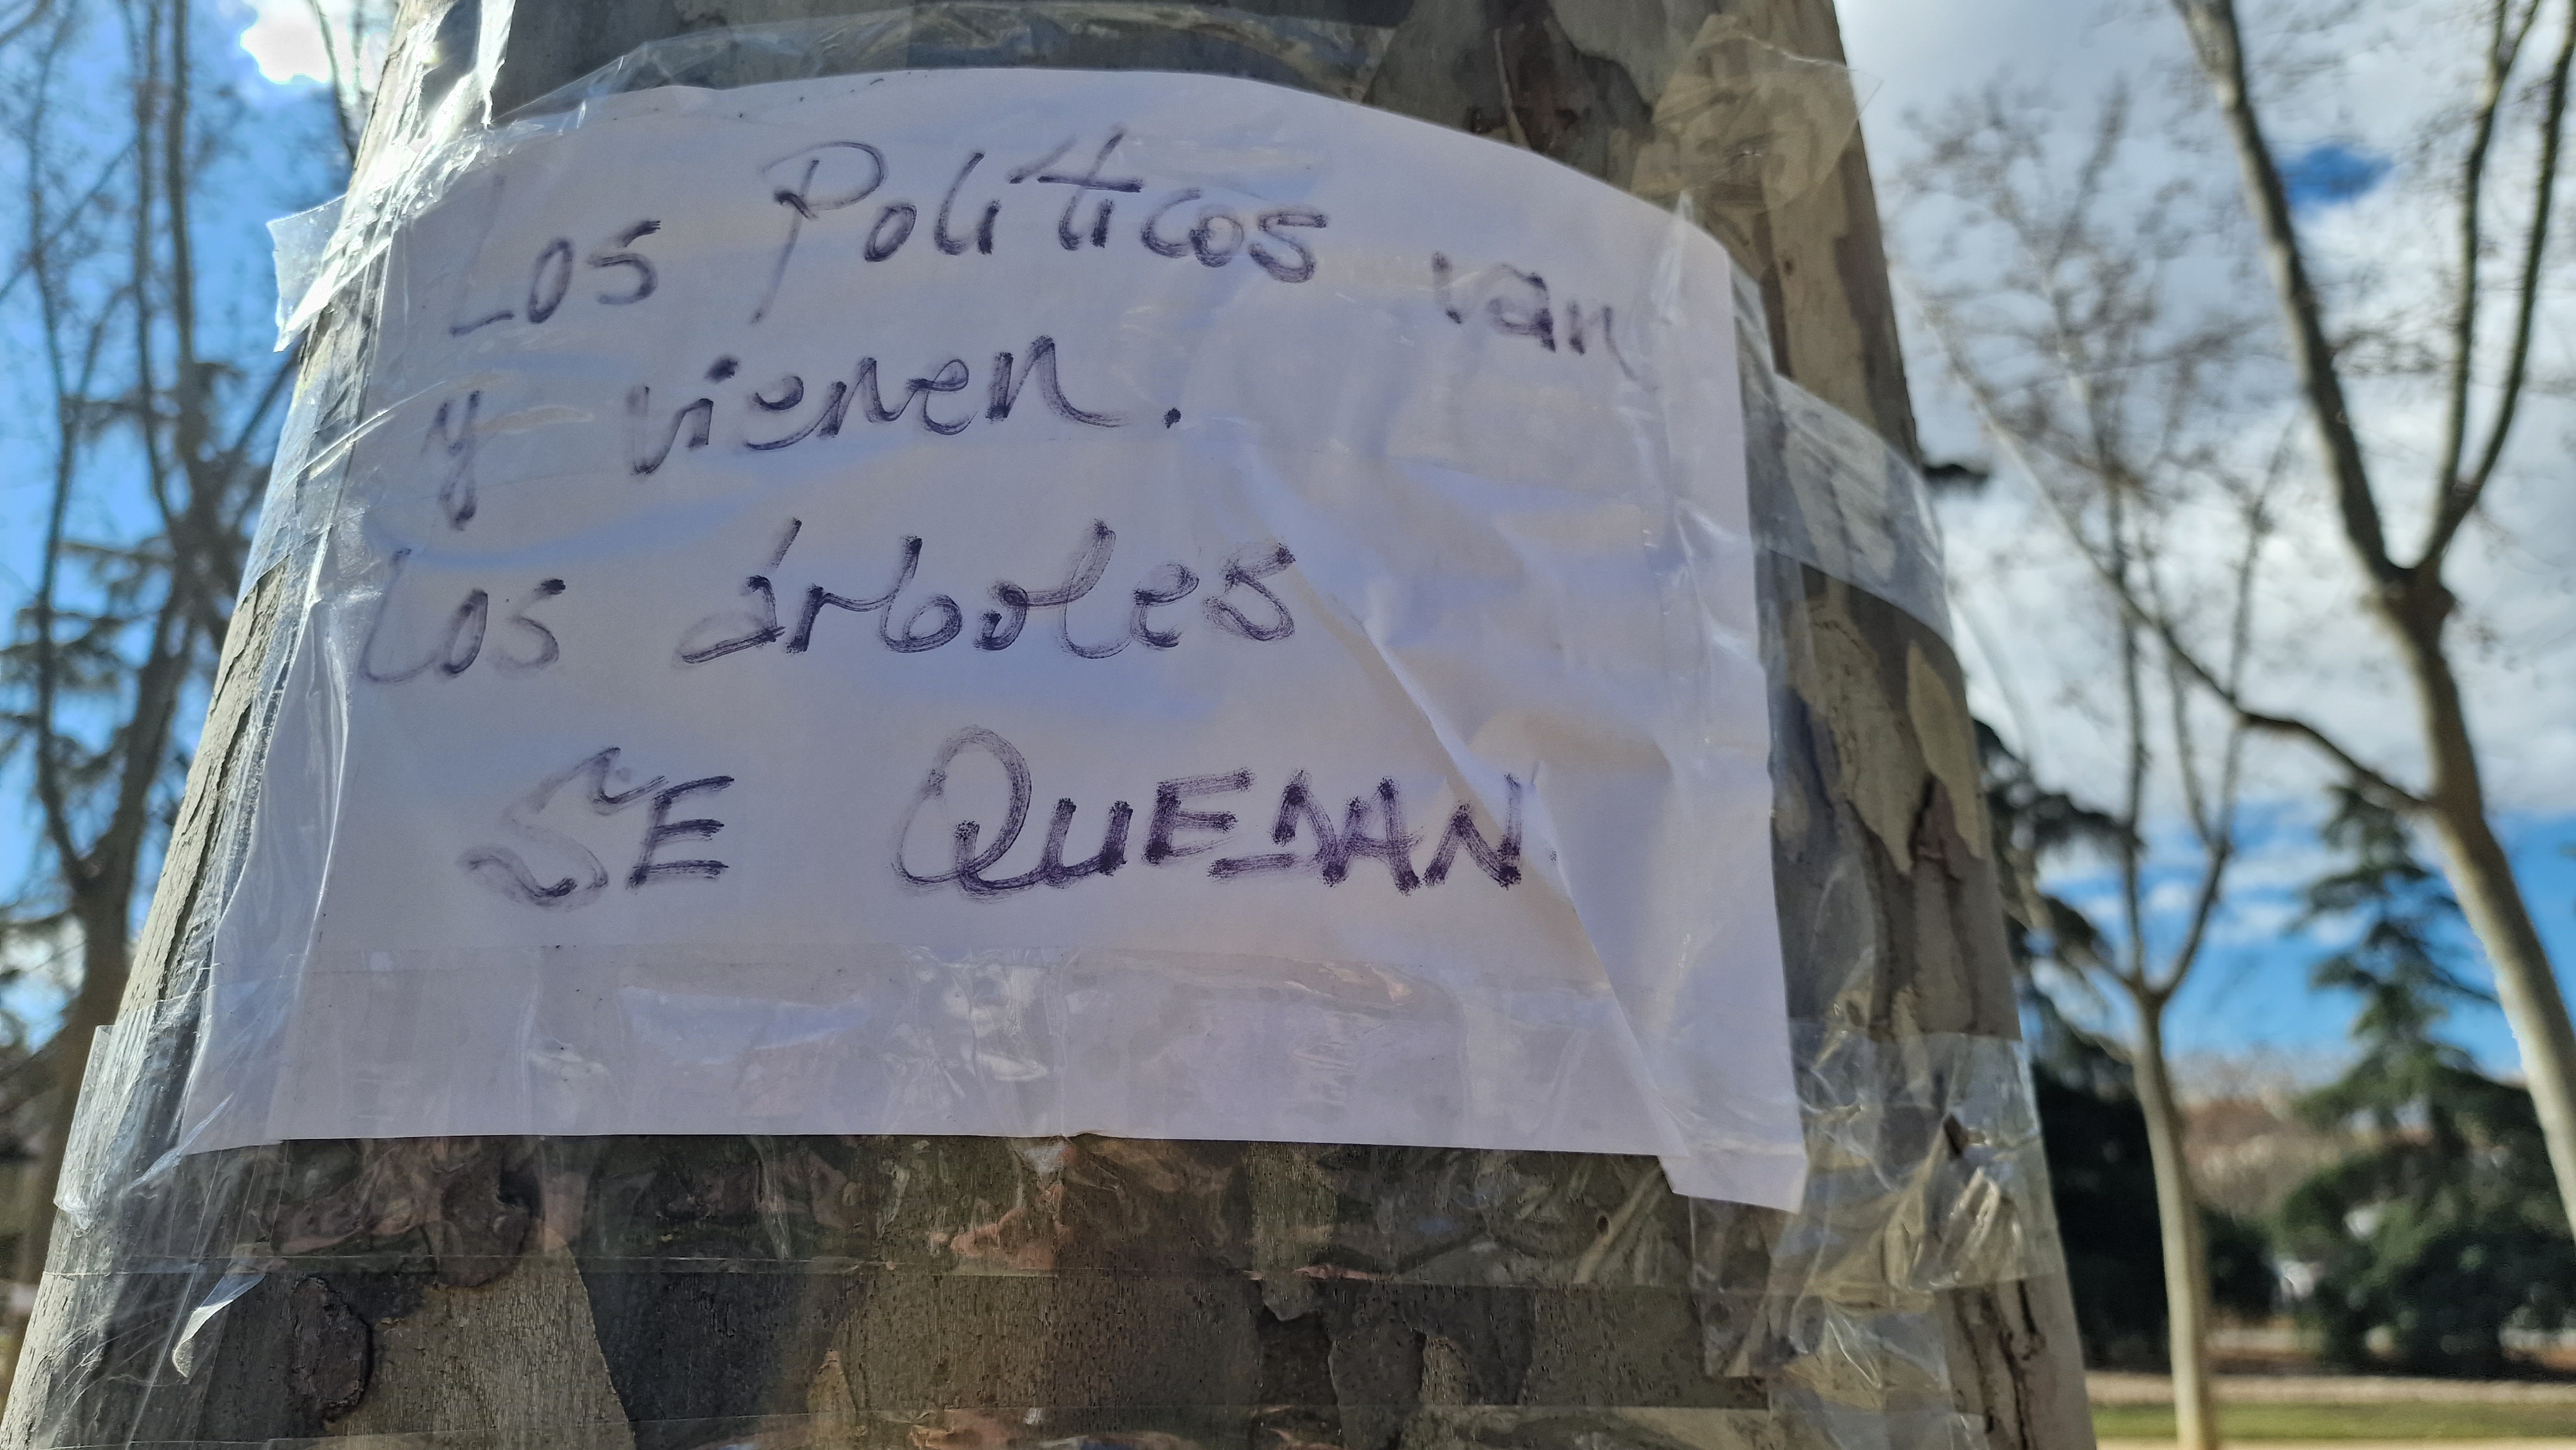 Los Políticos van
y vienen.
Los árboles
SE QUEDAN